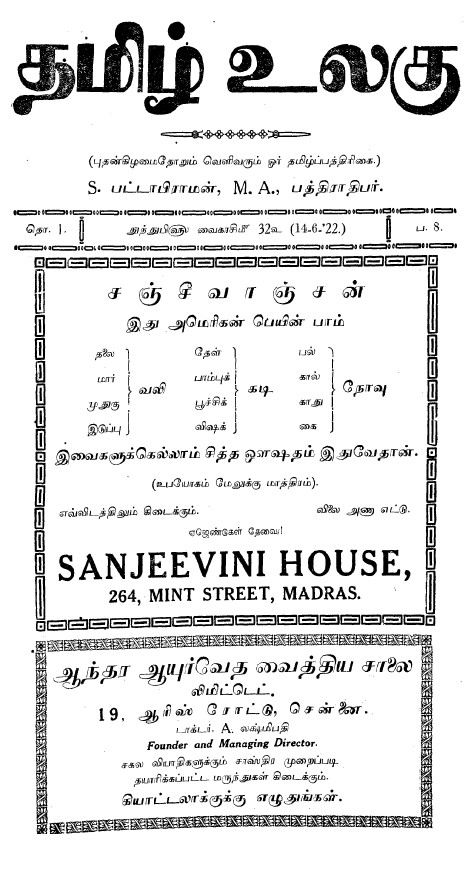 தமிழ் உலகு
(புதன்கிழமைதோறும் வெளிவரும் ஓர் தமிழ்ப்பத்திரிகை.)
S. பட்டாபிராமன், M. A., பத்திராதிபர்.
தொ. 1. துந்துபிஸ்ரீ வைகாசிமீ 32உ (14-6-'22.) ப. 8.
சஞ்சீவாஞ்சன்
இது அமெரிகன் பெயின் பாம்
தலை
மார்
முதுகு
இடுப்பு
வலி
தேள்
பாம்புக்
பூச்சிக்
விஷக்
கடி
பல்
கால்
காது
கை
நோவு
இவைகளுக்கெல்லாம் சித்த ஔஷதம் இதுவேதான்.
(உபயோகம் மேலுக்கு மாத்திரம்).
எவ்விடத்திலும் கிடைக்கும். விலை அணா எட்டு.
ஏஜெண்டுகள் தேவை!
SANJEEVINI HOUSE,
264, MINT STREET, MADRAS.
ஆந்தர ஆயுர்வேத வைத்திய சாலை
லிமிட்டெட்.
19, ஆரிஸ் ரோட்டு, சென்னை.
டாக்டர். A. லக்ஷ்மிபதி
Founder and Managing Director.
சகல வியாதிகளுக்கும் சாஸ்திர முறைப்படி
தயாரிக்கப்பட்ட மருந்துகள் கிடைக்கும்.
கியாட்டலாக்குக்கு எழுதுங்கள்.